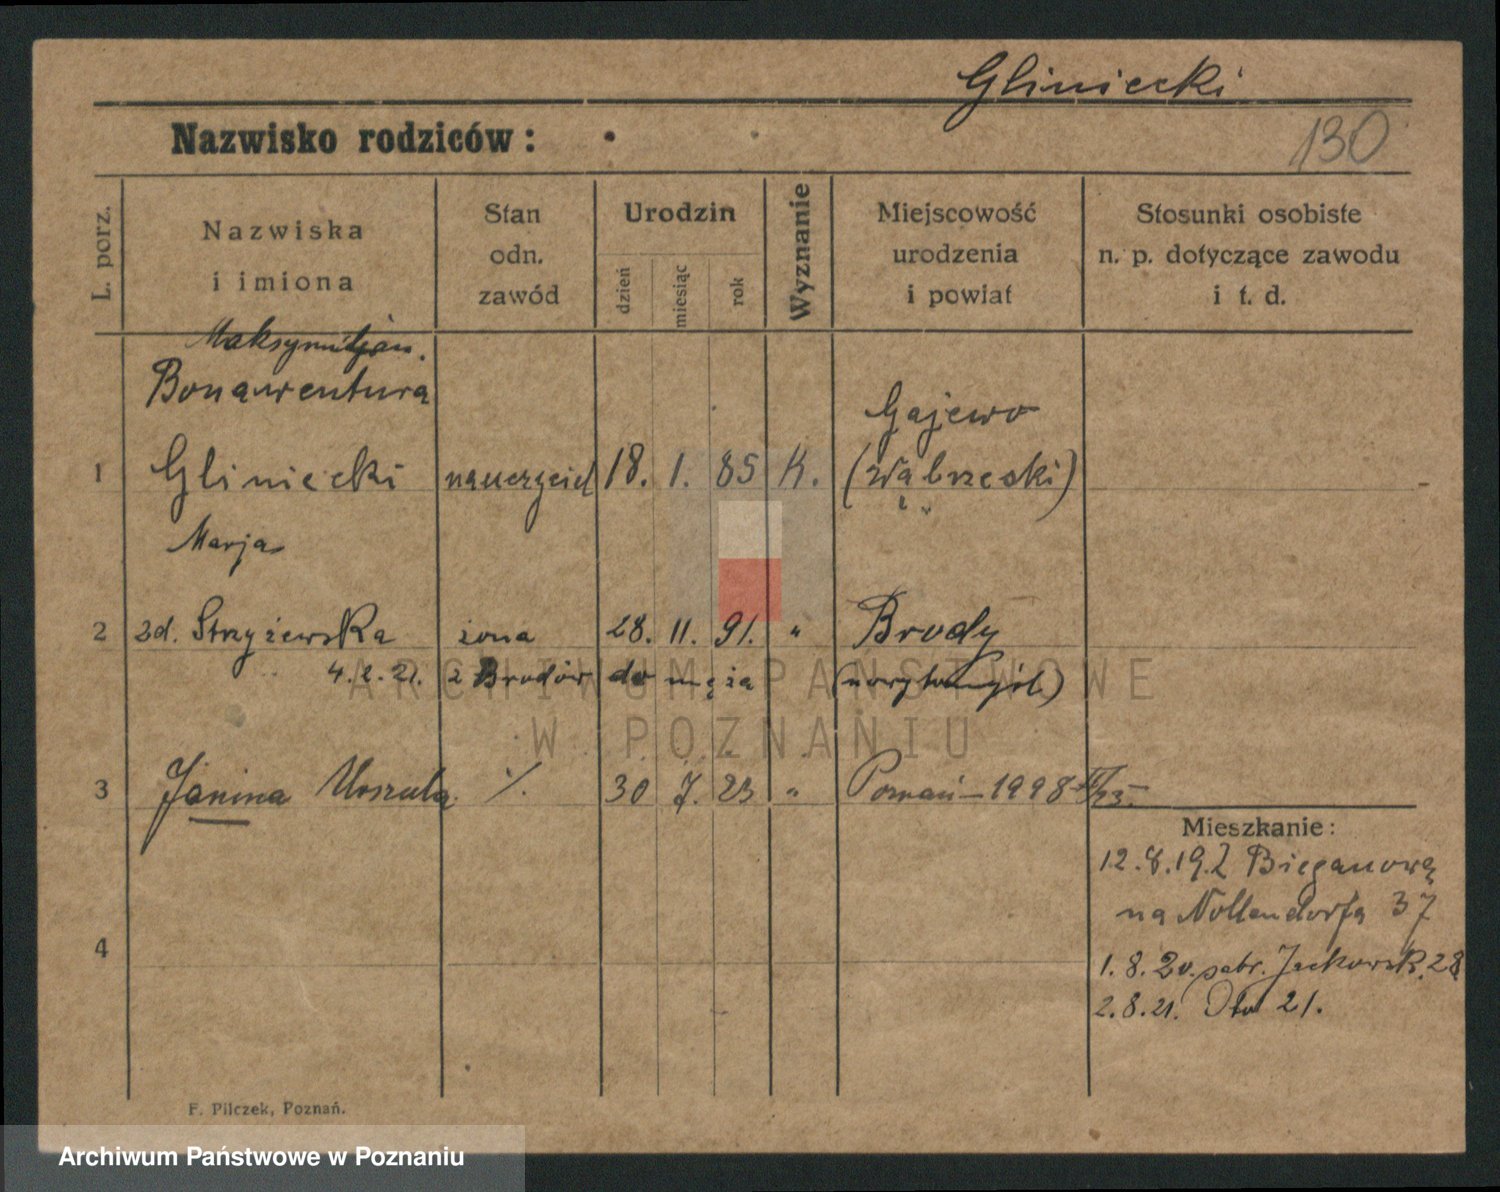 Gliniecki
Nazwisko rodziców:
130
L. porz.
Nazwiska
i imiona
Stan
odn.
zawód
Urodzin
dzień
miesiąc
rok
Wyznanie
Miejscowość
urodzenia
i powiat
Stosunki osobiste
n. p. dotyczące zawodu
i t. d.
Maksymiljan.
Bonawentura
Gajewo
1 Gliniecki nauczyciel 18. 1. 85 K. (Wąbrzeski)
Marja
2 zd. Strzyżewska żona 28. 11. 91. " Brody
4.2.21. z Brodów do męża (nowytomyśl.)
3 Janina Urszula ·/. 30 7. 23 " Poznań – 1998
Mieszkanie:
12.8.19. Z Bieganowa
na Nollendorfa 37
4
1.8.20. Jackowsk. 28
2.8.21. 21.
F. Pilczek, Poznań.
ARCHIWUM PAŃSTWOWE
W POZNANIU
Archiwum Państwowe w Poznaniu